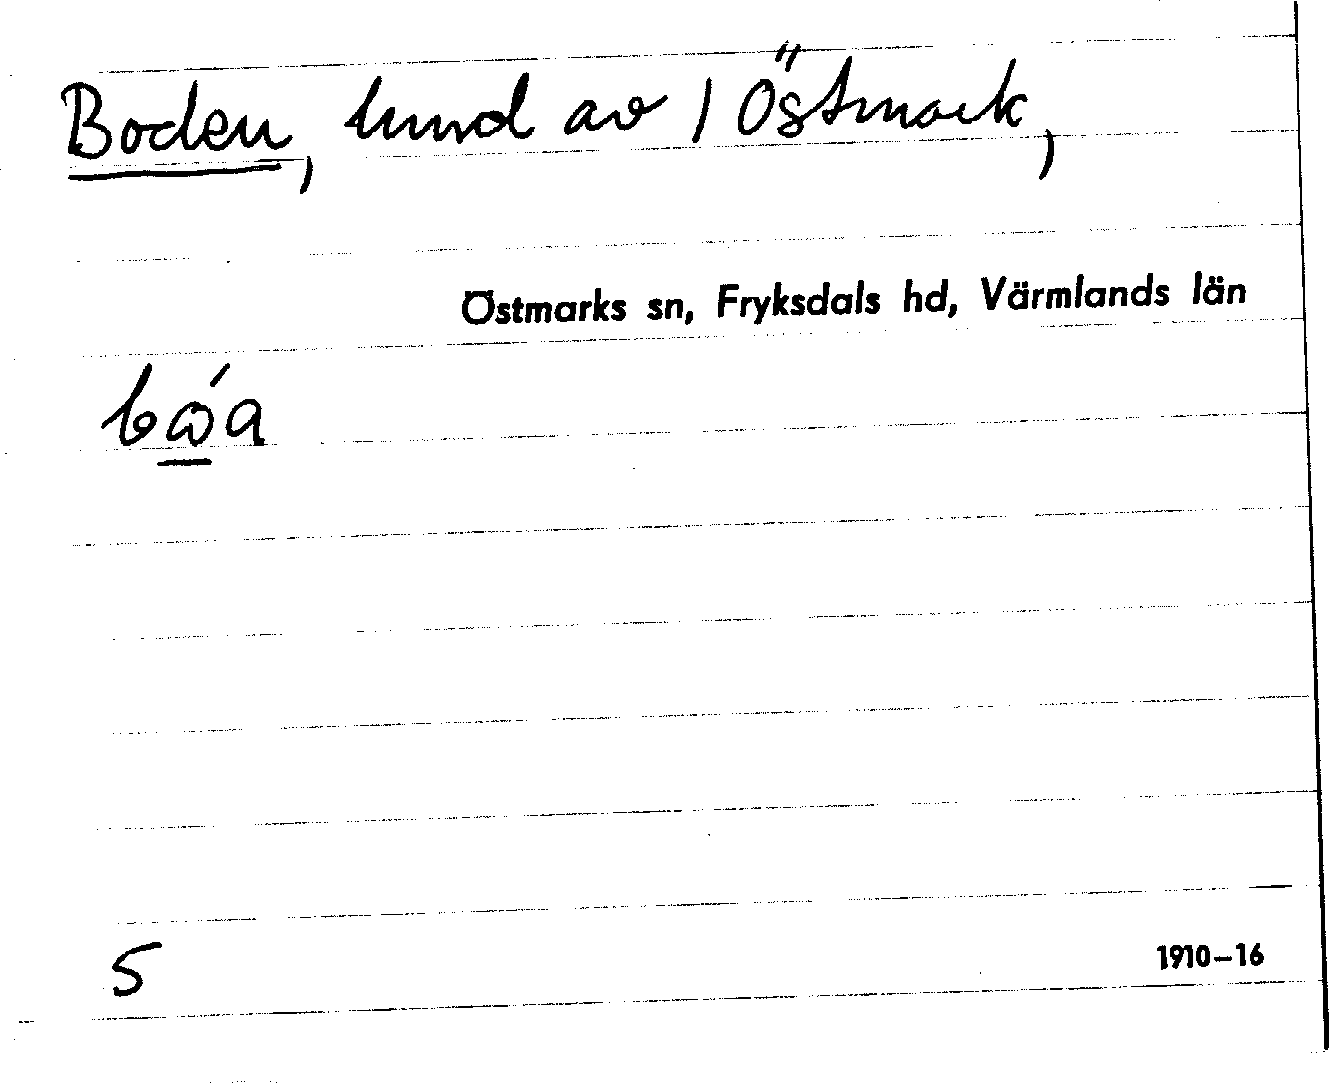 Boden, hmnd av 1 Östmark,
Östmarks sn, Fryksdals hd, Värmlands län
bώa
S
1910–16